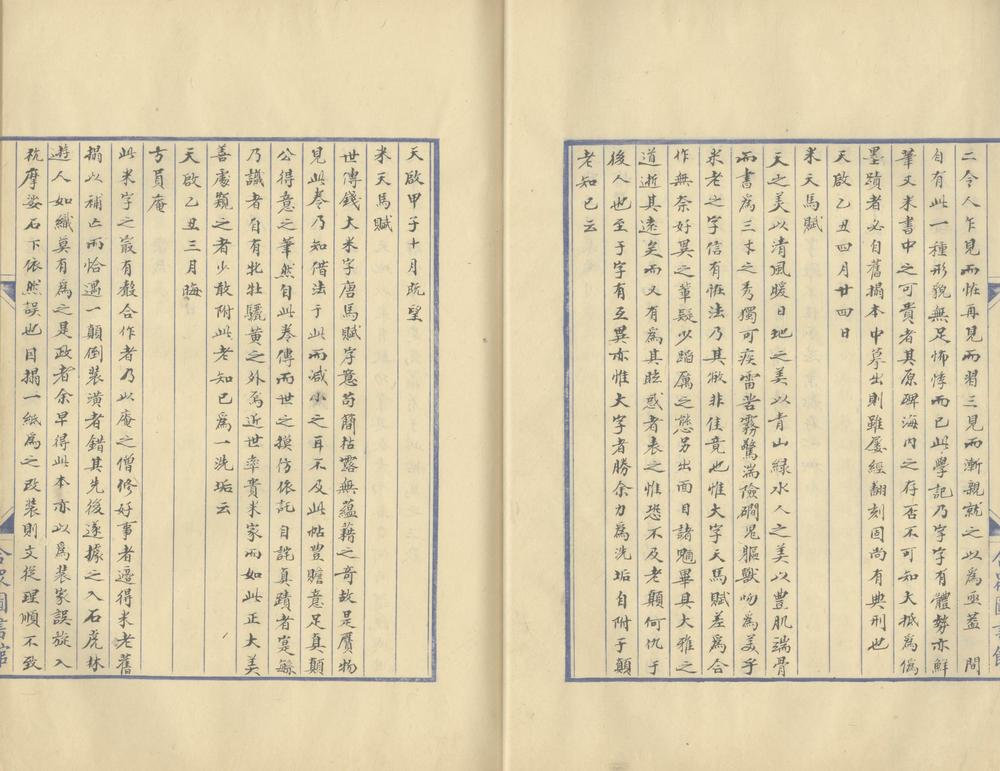 二令人乍見而怪再見而習三見而漸親就之以為亟蓋 間
自有此一種形貌無足怖悸而已此學記乃字字有體勢亦鮮
筆又米書中之可貴者其原碑海內之存否不可知大抵為僞
墨蹟者必自舊搨本中摹出則雖屡經翻刻固尚有典刑也
天啟乙丑四月廿四日
米天馬賦
天之美以清風暖日地之美以青山緑水人之美以豊肌端骨
而書為三才之秀獨可疾雷苦霧驚湍險磵鬼軀獸吻為美乎
米老之字信有怪法乃其敝非佳竟也惟大字天馬賦差為合
作無奈好異之輩疑少蹈厲之態另出面目諸魎畢具大雅之
道逝其遠矣而又有為其眩惑者表之惟恐不及老顛何仇于
後人也至于字有互異亦惟大字者勝余力為洗垢自附于顛
老知已云
天啟甲子十月既望
米天馬賦
世傳錢大米字唐馬賦字意苟簡枯露無蘊藉之奇故是贋物
見此卷乃知借法于此而减小之耳不及此帖豊贍意足真顛
公得意之筆然自此卷傳而世之摸仿依託自詫真蹟者寔緐
乃識者自有牝牡驪黄之外為近世率貴米家而如此正大美
善處窺之者少敢附此老知已為一洗垢云
天啟乙丑三月晦
方員庵
此米字之最有殽合作者乃以庵之僧修好事者遷得米老舊
搨以補亡而恰遇一顛倒装潢者錯其先後遂據之入石虎林
遊人如織莫有為之是政者余早得此本亦以為装家誤旋入
杭摩娑石下依然誤也因搨一紙為之改装則文從理順不致
合眾圖書館
合眾圖書館